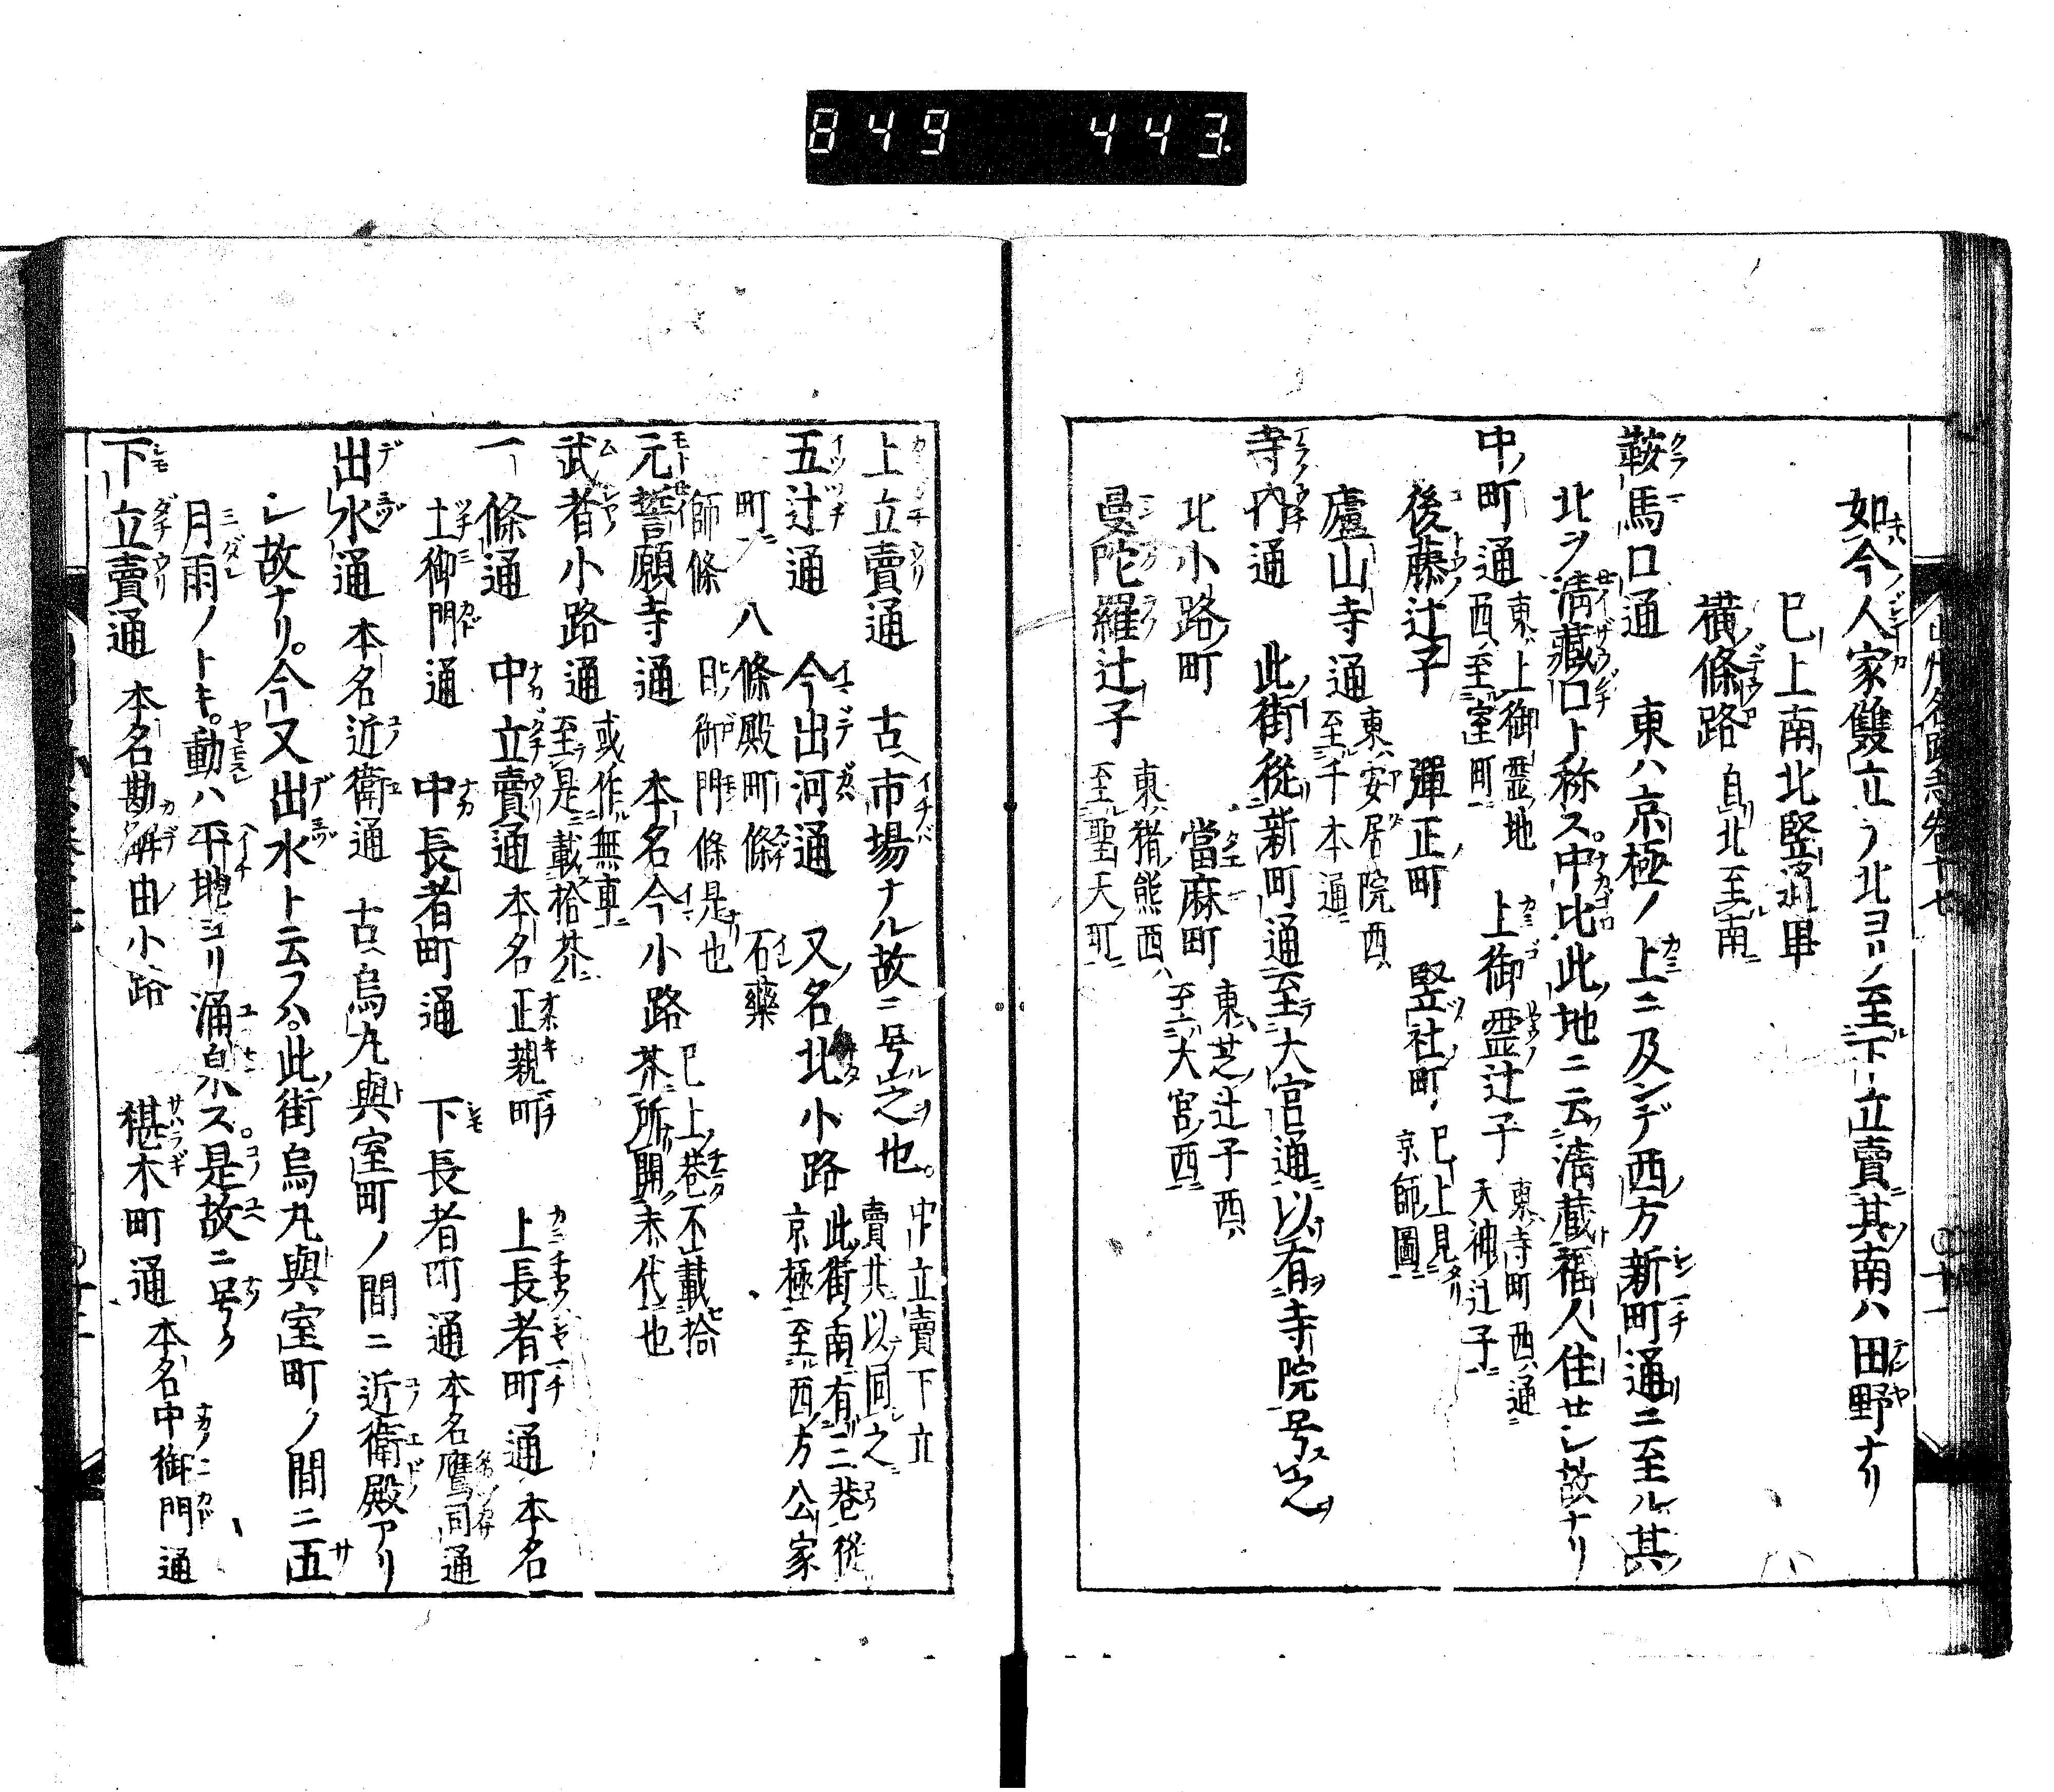 849 443
如今人家雙立ヲ北ヨリ至下立賣其南ハ田野ナリ
已上南北竪通畢
横條路 自北至南
鞍馬口通 東ハ京極ノ上ニ及ンデ西方新町通ニ至ル其
北ヲ清藏口ト称ス中比此地ニ云清蔵福人住せシ故ナリ
中ノ町通 東ハ上御霊地 西ハ至室町 上御霊辻子 東ハ寺町西ハ通 天神辻子
後藤辻子 彈正町 竪社町 已上見 京師圖
廬山寺通 東ハ安居院西ハ 至千本通
寺内通 此街從新町通至大宮通以有寺院号之
北小路町 當麻町 東ハ芝辻子西ハ 至大宮西
曼陀羅辻子 東ハ猪熊西ハ 至聖天町
上立賣通 古ヘ市場ナル故ニ号之也 中立賣下立 賣共以同之
五辻通 今出河通 又名北小路 此街南有三巷從 京極至西方公家
町 八條殿町條 石藥
師條 日御門條是也
元誓願寺通 本名今小路 已上巷不載拾 芥所開末代也
武者小路通 或作無車 至是載拾芥
一條通 中立賣通 本名正親町 上長者町通 本名
土御門通 中長者町通 下長者町通 本名鷹司通
出水通 本名近衛通 古ヘ烏丸與室町ノ間ニ近衛殿アリ
シ故ナリ今又出水ト云フハ此街烏丸與室町ノ間ニ五
月雨ノトキ動ハ平地ヨリ涌泉ス是故ニ号ク
下立賣通 本名勘解由小路 椹木町通 本名中御門通